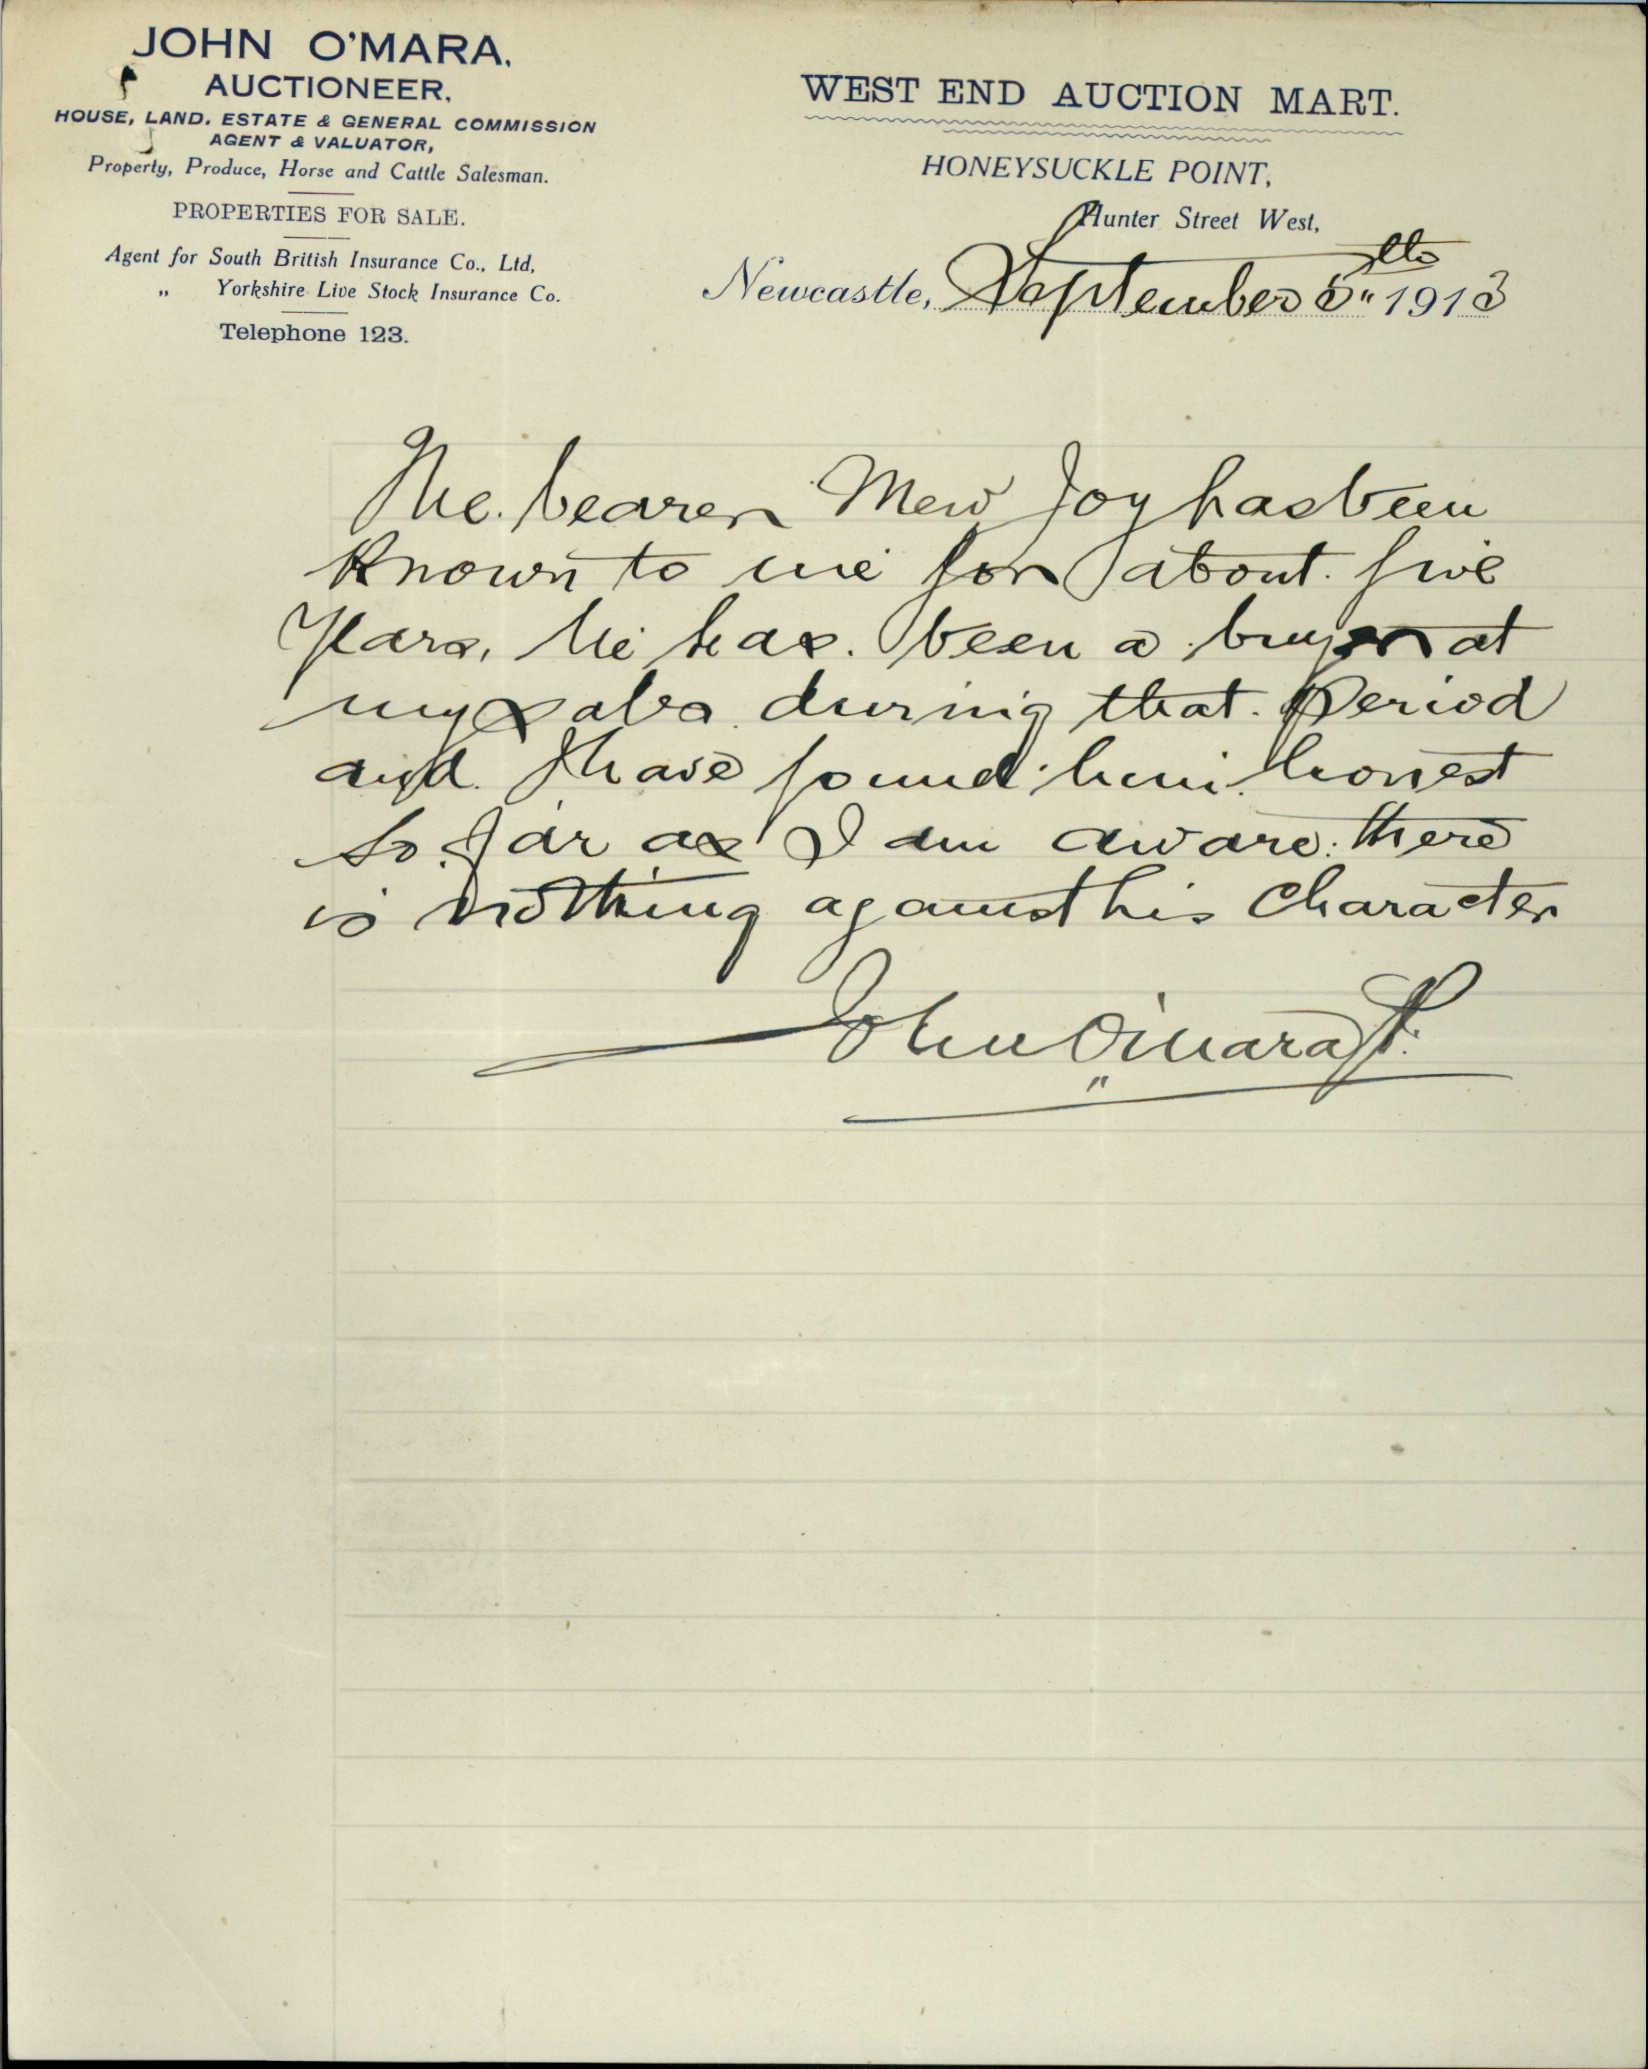 JOHN O'MARA,
AUCTIONEER,
HOUSE, LAND, ESTATE & GENERAL COMMISSION
AGENT & VALUATOR,
Property, Produce, Horse and Cattle Salesman.
PROPERTIES FOR SALE.
Agent for South British Insurance Co., Ltd,
„ Yorkshire Live Stock Insurance Co.
Telephone 123.
WEST END AUCTION MART.
HONEYSUCKLE POINT,
Hunter Street West,
Newcastle, September 5th 1913
The bearer Mew Joy has been
Known to me for about five
Years, he has been a buyer at
my sales during that period
and I have found him honest
so far as I am aware there
is nothing against his Character
John O'Mara